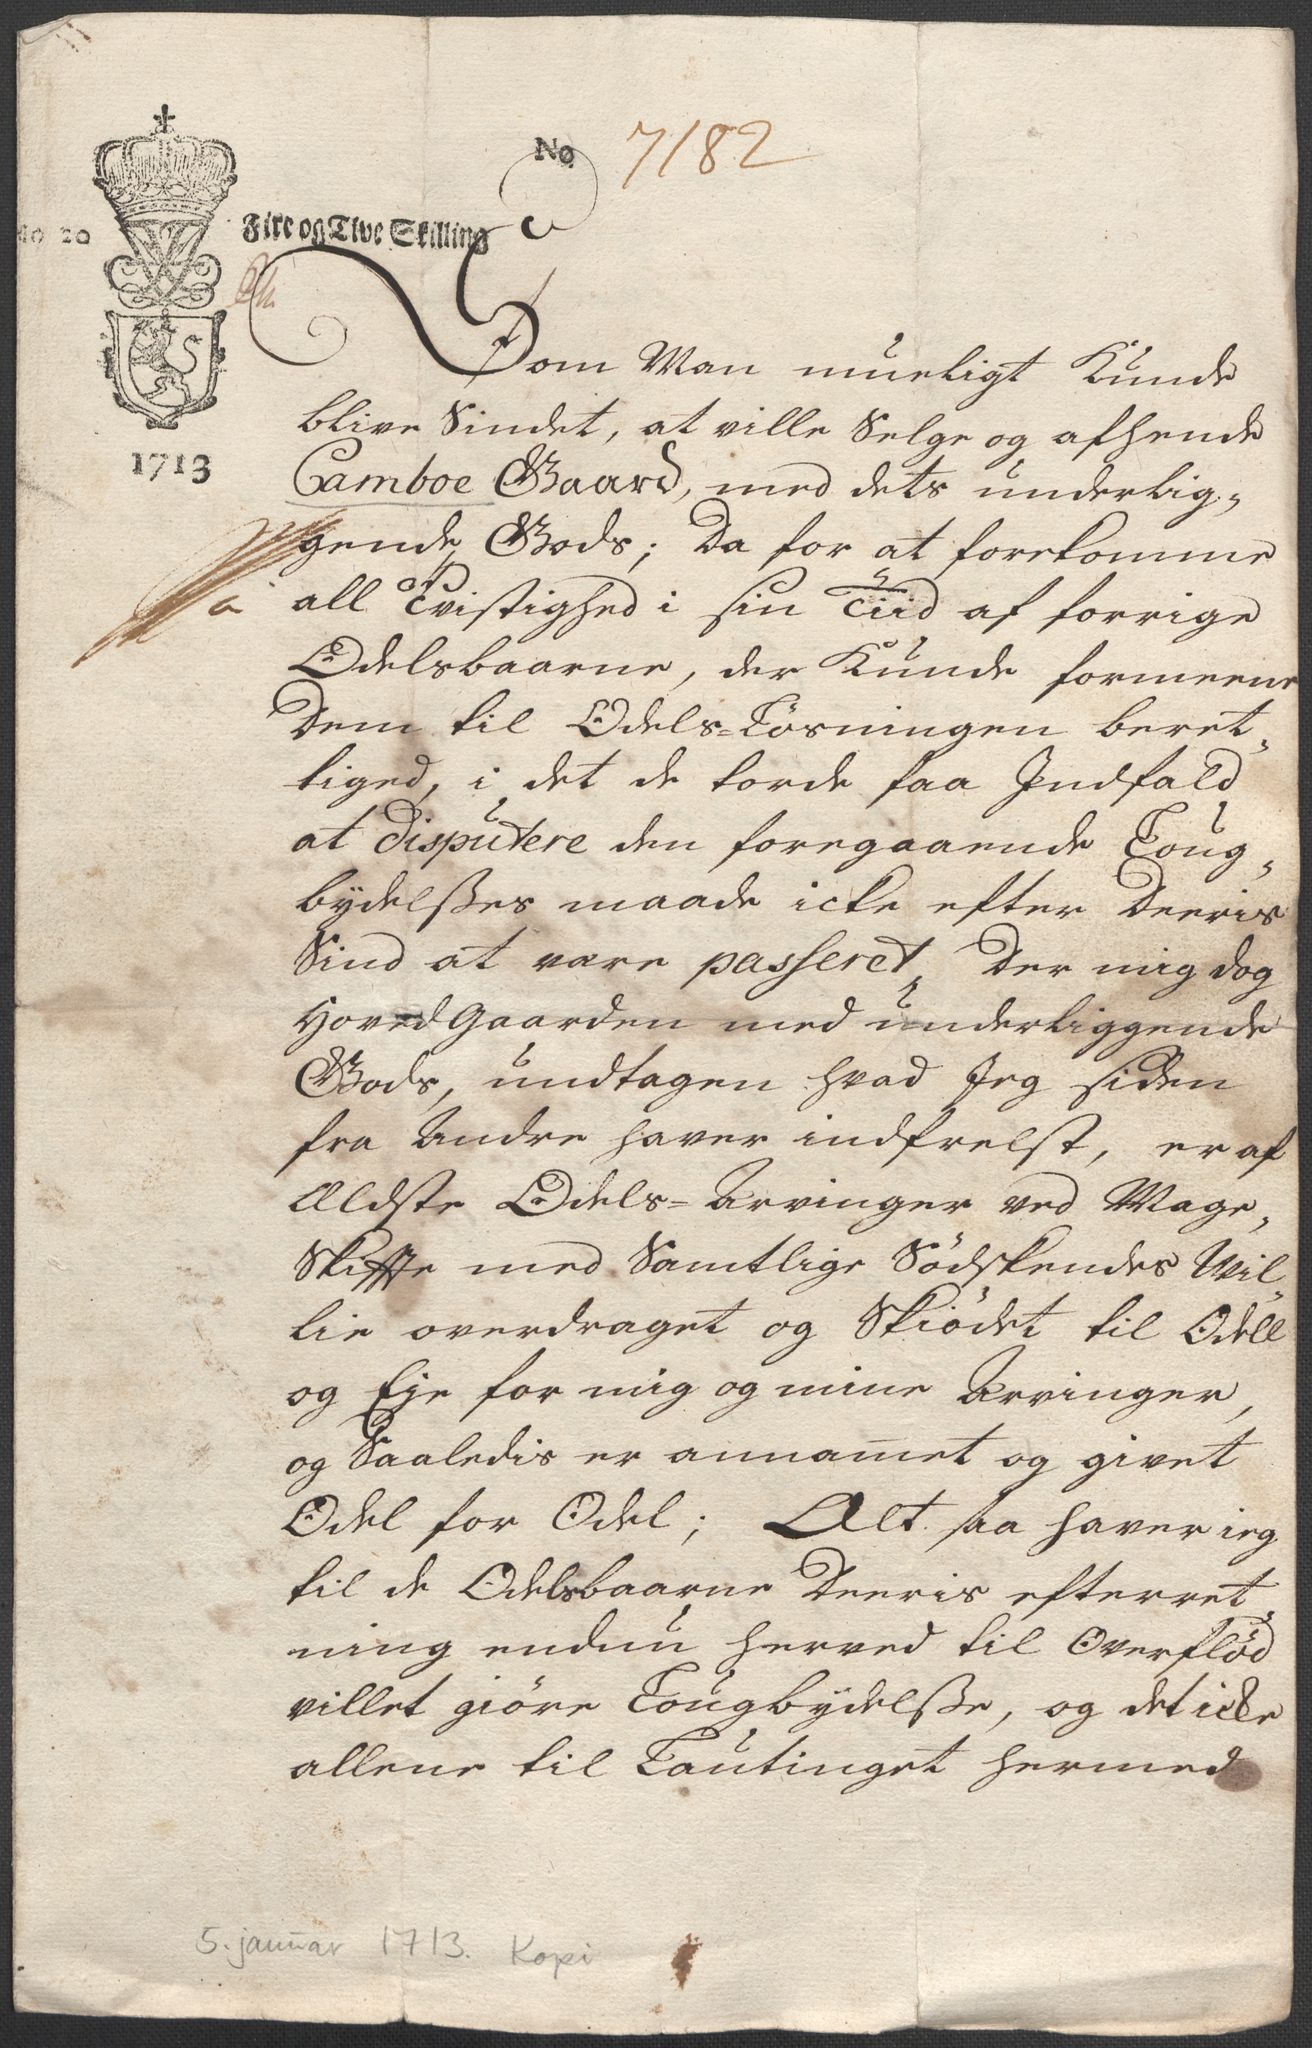 No 7182
No 20
Fire og Tive Skilling
1713
Som Man mueligt Kunde
blive Sindet, at ville Selge og afhende
Camboe Gaard, med dets underlig,,
gende Gods; Da for at forekomme
all Tvistighed i sin Tiid af forrige
Odelsbaarne, der Kunde formeene
Dem til Odels-Løsningen beret,,
tiged, i det de torde faa Indfald
at disputere den foregaaende Loug,,
bydelsses maade icke efter Deeris
Sind at være passeret, Der mig dog
HovedGaarden med underliggende
Gods, undtagen hvad Jeg siden
fra Andre haver indfrelst, er af
Ældste Odels-Arvinger ved Mage,,
Skiffte med Samtlige Sødskendes Wil,,
lie overdraget og Skiødet til Odell
og Eje for mig og mine Arvinger,
og Saaledis er annam̄et og givet
Odel for Odel; Alt saa haver ieg
til de Odelsbaarne Deeris efterret,,
ning endnu herved til Overflød
villet giöre Lougbydelsse, og det icke
allene til Lautinget hermed
5. januar 1713. Kopi